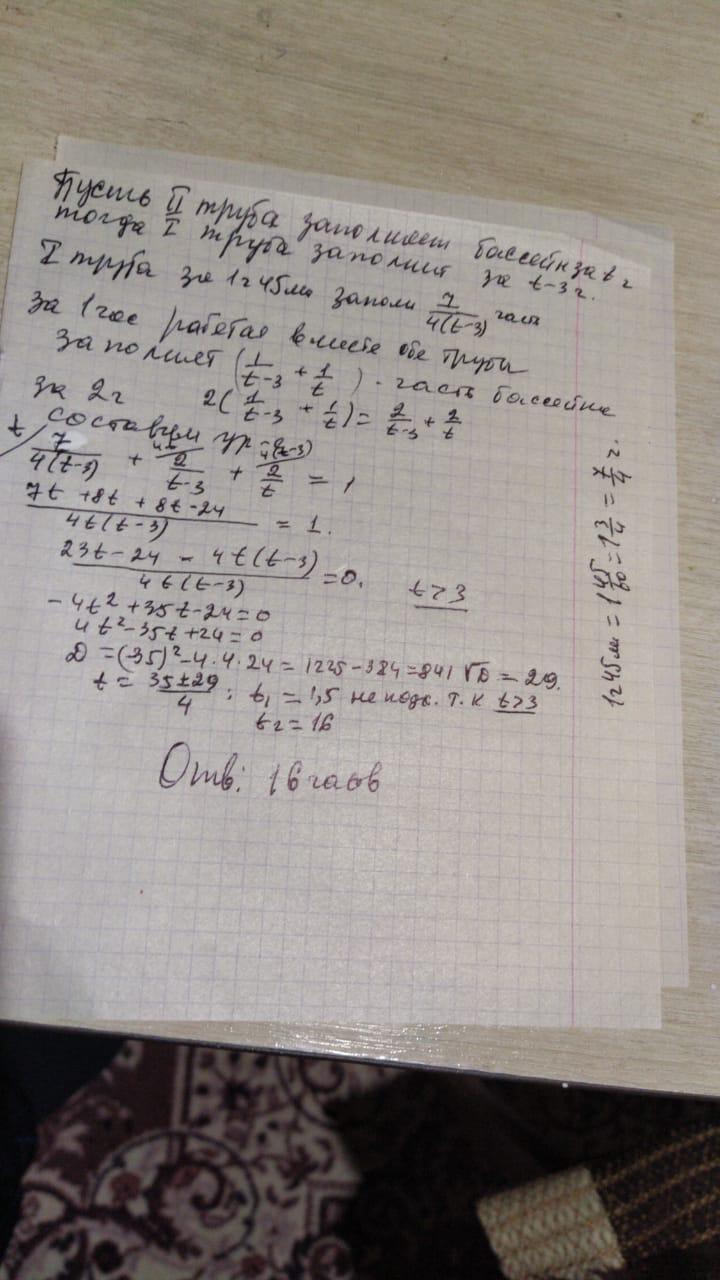 Пусть II труба заполняет бассейн за t ч
тогда I труба заполнит за t-3 ч.
I труба за 1ч 45мин заполн 7/4(t-3) часть
За 1 час работая вместе обе трубы
заполнят (1/t-3 + 1/t) - часть бассейна
за 2ч 2(1/t-3 + 1/t) = 2/t-3 + 2/t
составим ур-е
t/ 7/4(t-3) + 4t/ 2/t-3 + 4(t-3)/ 2/t = 1
7t + 8t + 8t - 24 / 4t(t-3) = 1.
23t - 24 - 4t(t-3) / 4t(t-3) = 0. t>3
-4t² + 35t - 24 = 0
4t² - 35t + 24 = 0
D = (-35)² - 4·4·24 = 1225 - 384 = 841 √D = 29.
t = 35±29/4 ; t₁ = 1,5 не подх. т.к t>3
t₂ = 16
Отв: 16 часов
1ч 45мин = 1 45/60 = 1 3/4 = 7/4 ч.